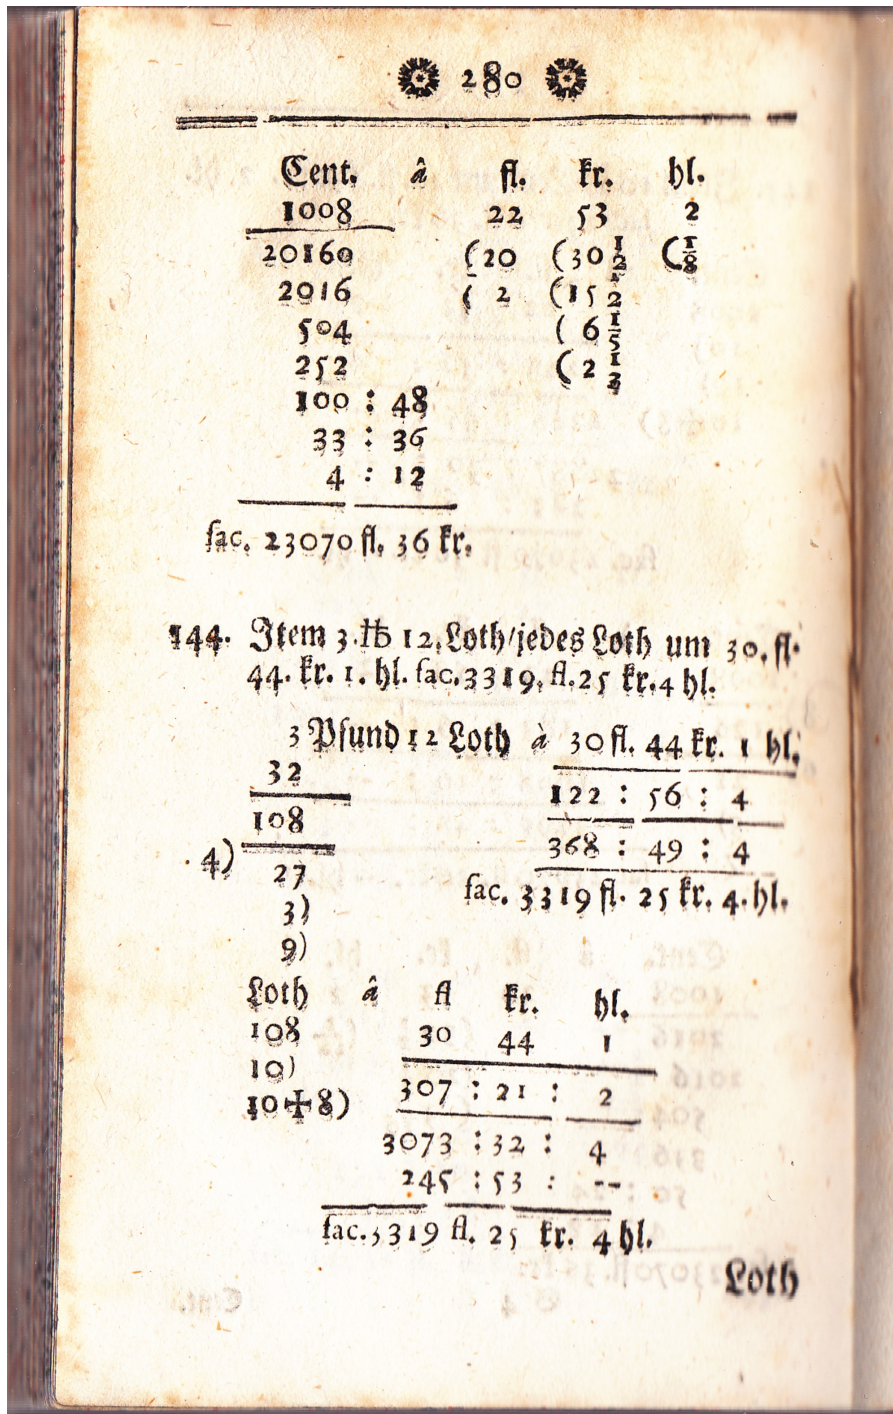 280
Cent. â fl. kr. hl.
1008 22 53 2
20160 (20 (30 1/2 (1/8
2016 ( 2 (15 1/2
504 ( 6 1/5
252 (2 1/2
100 : 48
33 : 36
4 : 12
fac. 23070 fl. 36 kr.
144. Item 3. ℔ 12. Loth/ jedes Loth um 30. fl.
44. kr. 1. hl. fac. 3319. fl. 25 kr. 4 hl.
3 Pfund 12 Loth à 30 fl. 44 kr. 1 hl.
32
122 : 56 : 4
108
368 : 49 : 4
4) 27
fac. 3319 fl. 25 kr. 4. hl.
3)
9)
Loth â fl kr. hl.
108 30 44 1
10)
307 : 21 : 2
10✠8)
3073 : 32 : 4
245 : 53 : --
fac. 3319 fl. 25 kr. 4 hl.
Loth